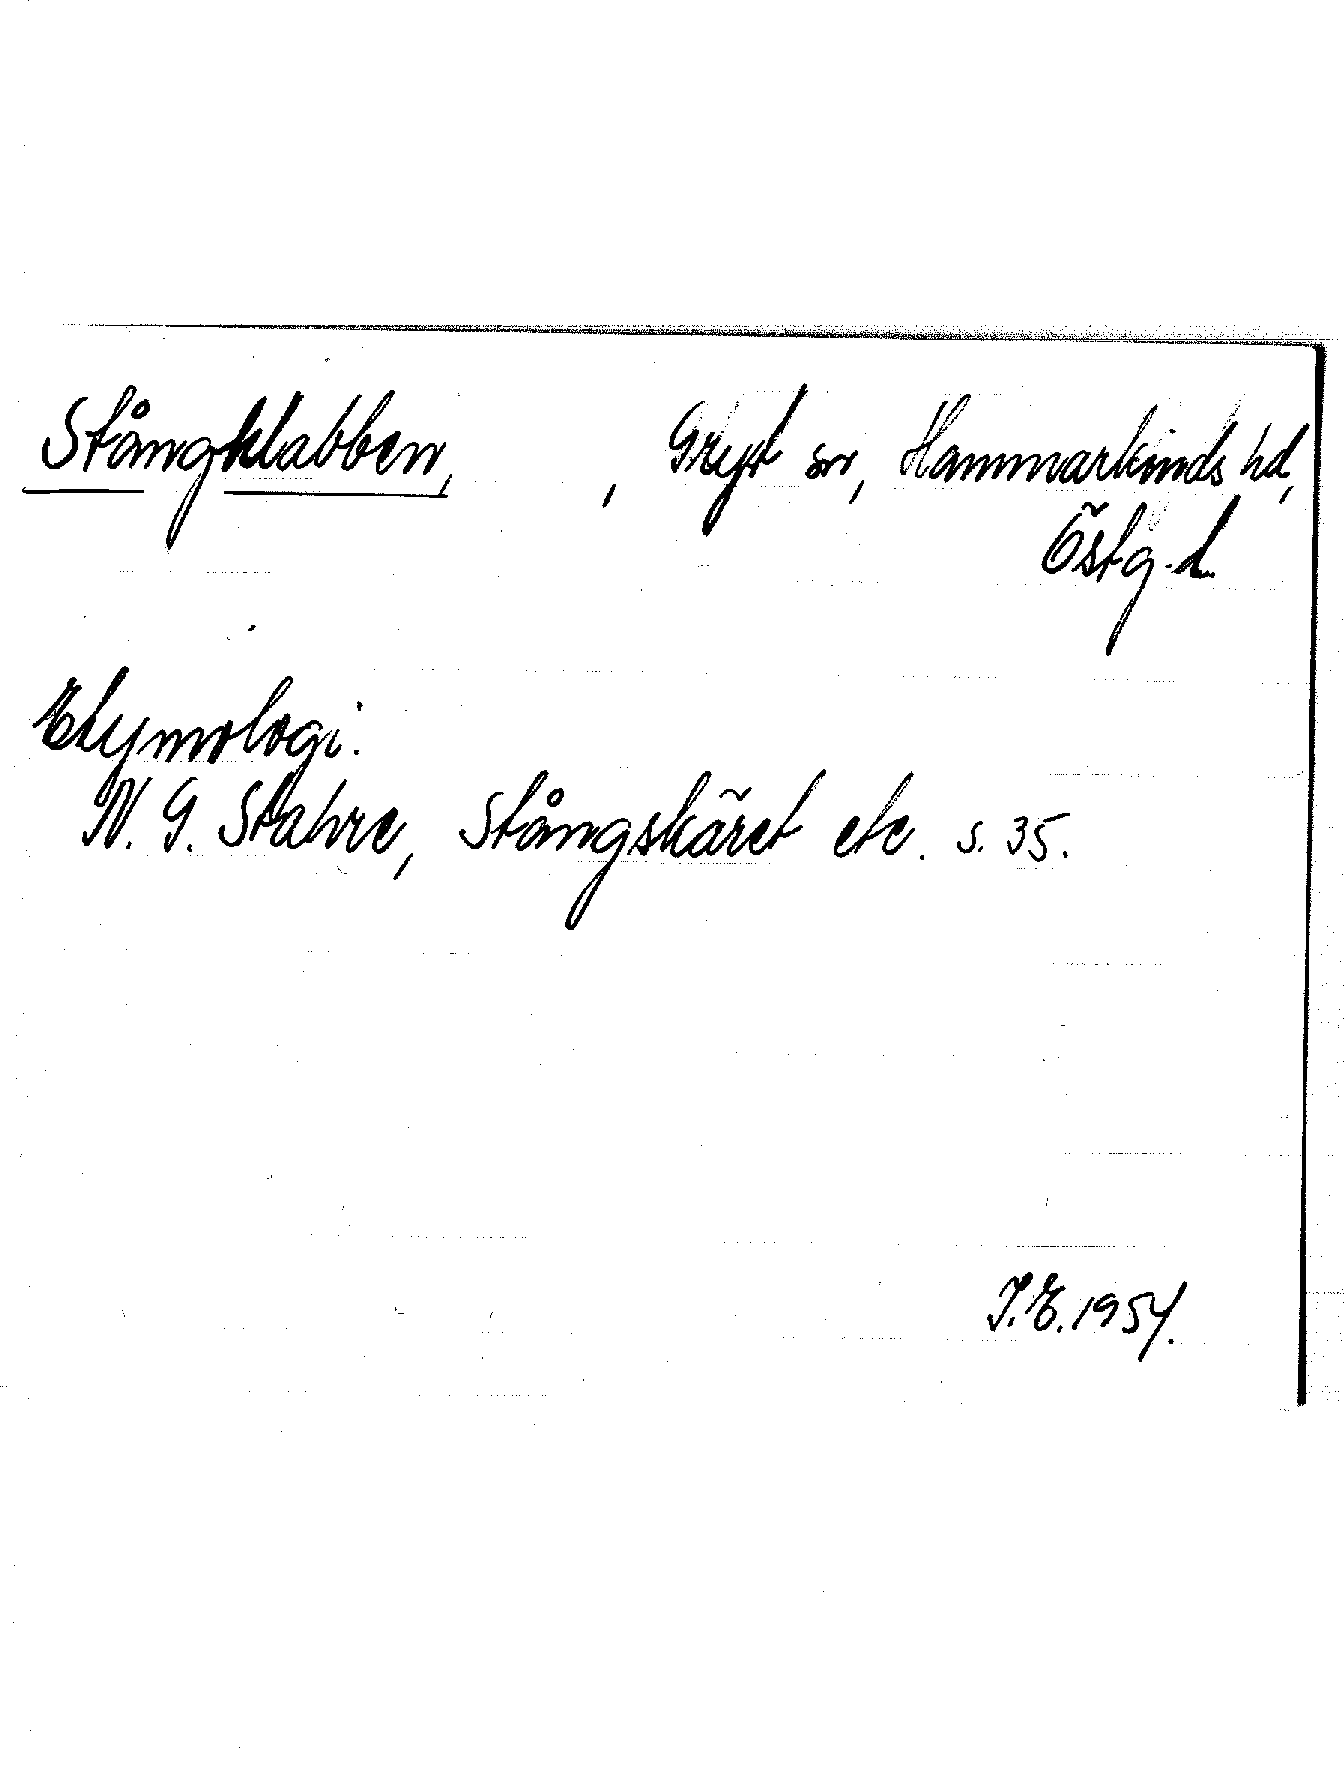 Stångklabben, , Gryt sn, Hammarkinds hd,
Östg. l.
Etymologi:
N. G. Stahre, Stångskäret etc. s. 35.
I. E. 1954.